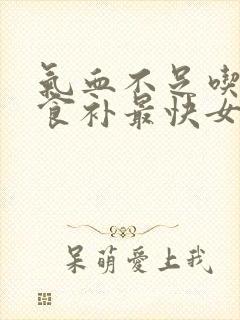 氣血不足喫
食补最快女
呆萌愛上我